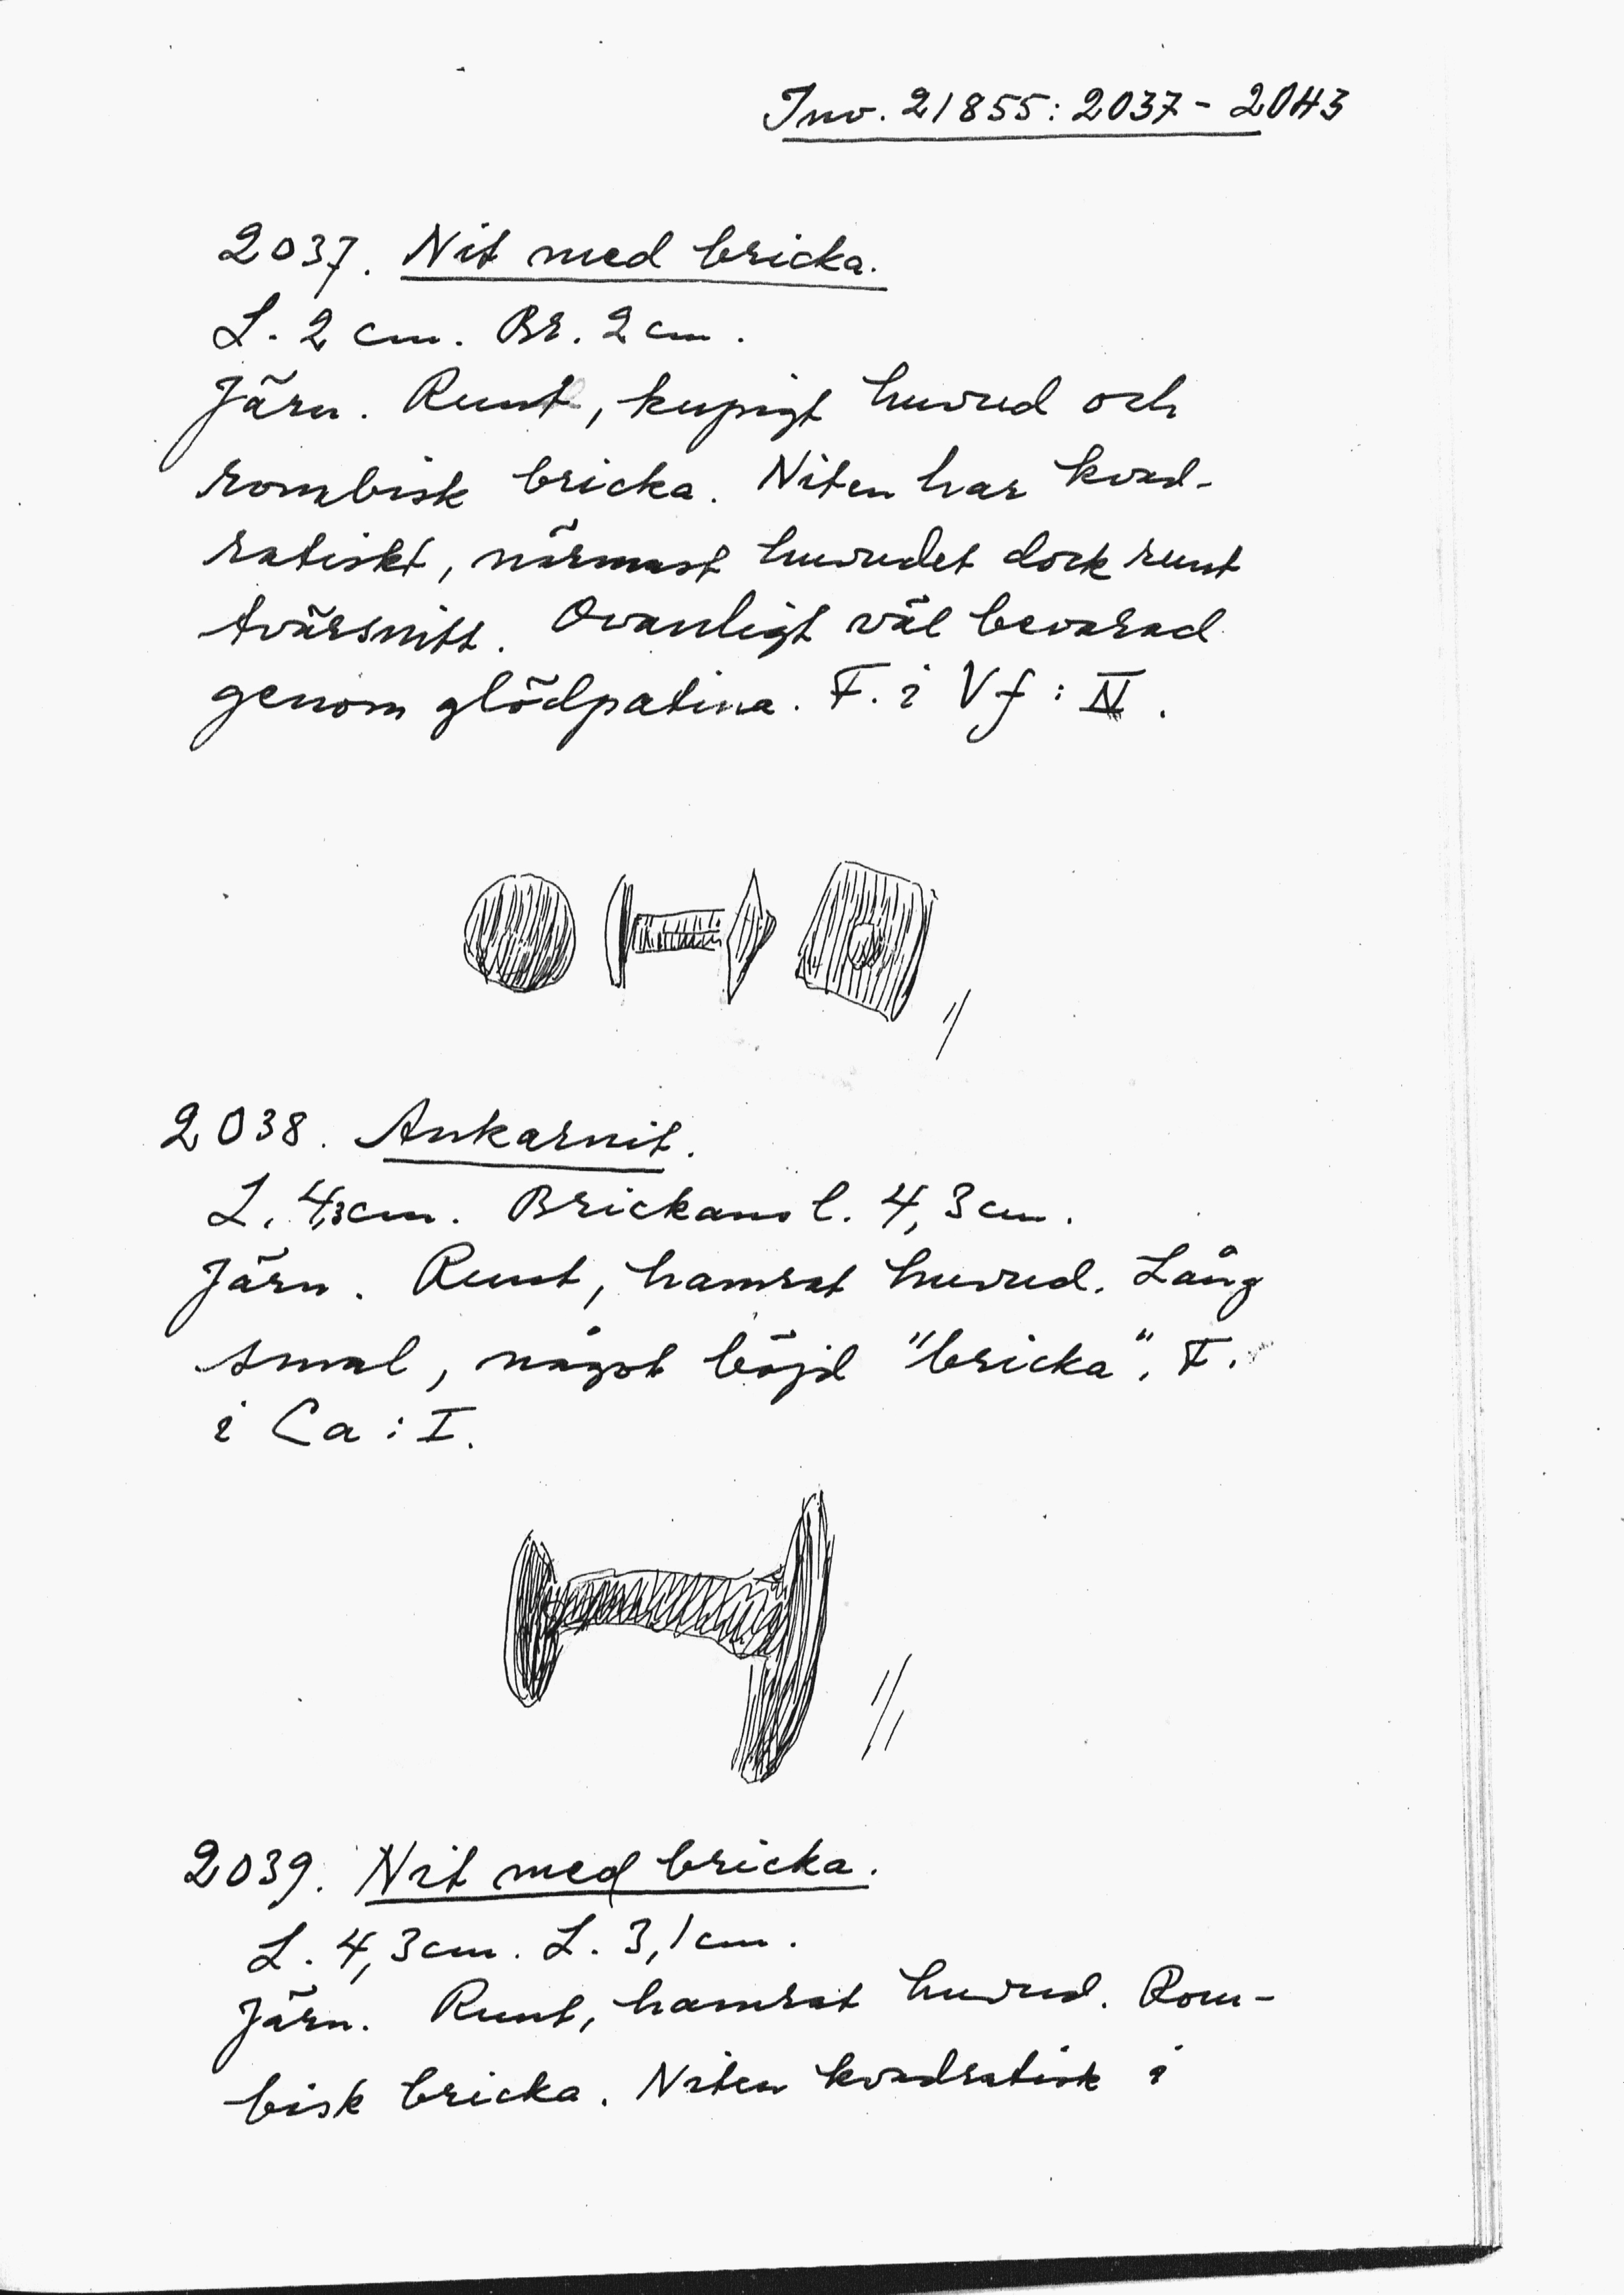 Inv. 21855: 2037 - 2043
2037. Nit med bricka.
L. 2 cm. Br. 2 cm.
Järn. Runt, kupigt huvud och
rombisk bricka. Niten har kvad-
ratiskt, närmast huvudet dock runt
tvärsnitt. Ovanligt väl bevarad
genom glödpatina. F. i Vf : IV.
1/1
2038. Ankarnit.
L. 4,3 cm. Brickans l. 4,3 cm.
Järn. Runt, hamrat huvud. Lång
smal, något böjd "bricka". F.
i Ca : I.
1/1
2039. Nit med bricka.
L. 4,3 cm. L. 3,1 cm.
Järn. Runt, hamrat huvud. Rom-
bisk bricka. Niten kvadratisk i